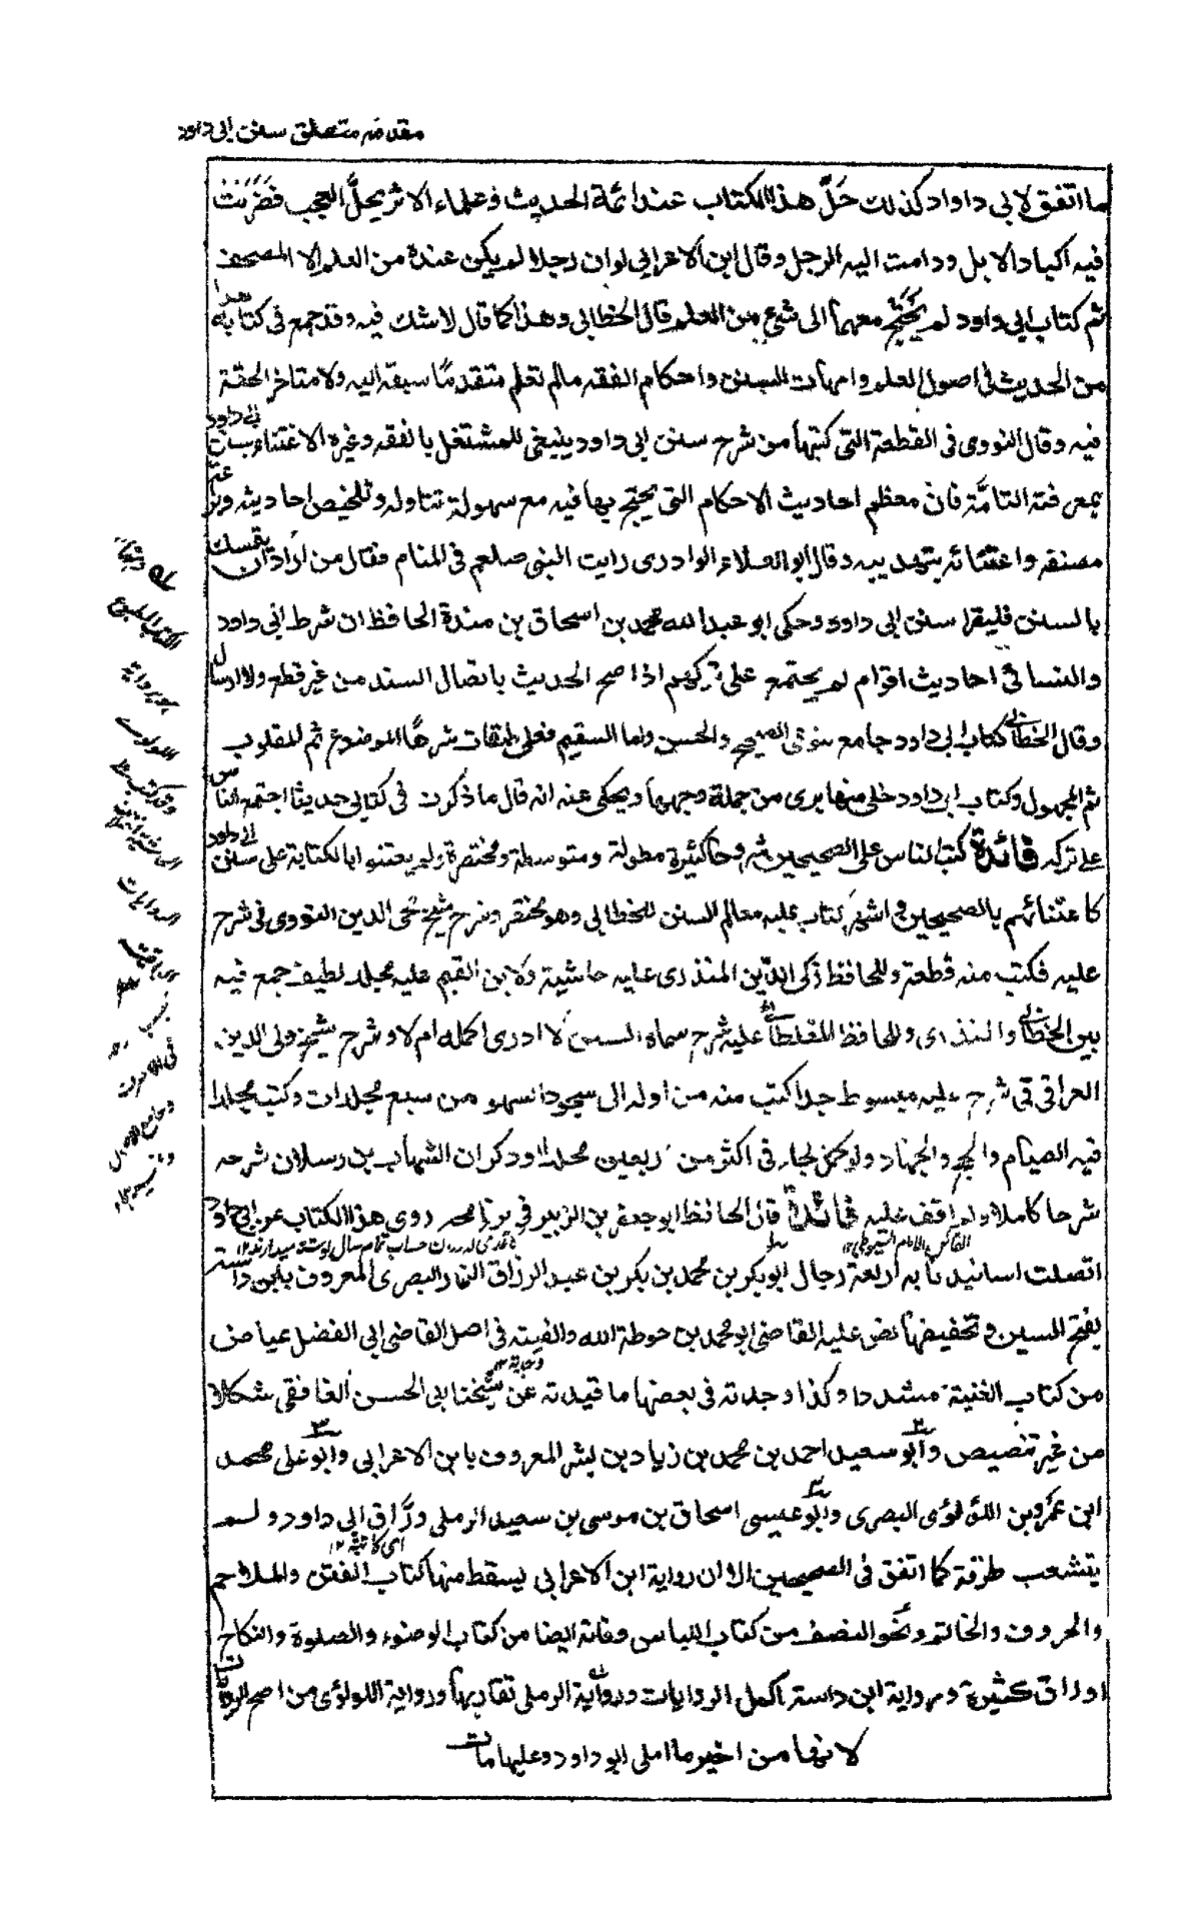 مقدمه متعلق سنن ابی داود
ما اتفق لابی داود كذلك حَلَّ هذا الكتاب عند ائمة الحديث وعلماء الاثر محلَّ العجب فضربت
فيه اكباد الابل ودامت اليه الرجل وقال ابن الاعرابی لو ان رجلا لم يكن عنده من العلم الا المصحف
ثم كتاب ابی داود لم يحتج معهما الى شیء من العلم قال الخطابی وهذا كما قال لا شك فيه وقد جمع فی كتابه هذا
من الحديث فی اصول العلم وامهات السنن واحكام الفقه مالم نعلم متقدمًا سبقه اليه ولا متاخر الحقه
فيه وقال النووی فی القطعة التی كتبها من شرح سنن ابی داود ينبغی للمشتغل بالفقه وغيره الاعتناء بسنن ابی داود
بمعرفته التامَّة فان معظم احاديث الاحكام التی يحتج بها فيه مع سهولة تناوله وتلخيص احاديثه وبراعة
مصنفه واعتنائه بتهذيبه وقال ابو العلاء الوادری رايت النبی صلعم فی المنام فقال من اراد ان يتمسك
بالسنن فليقرا سنن ابی داود وحكی ابو عبد الله محمد بن اسحاق بن مندة الحافظ ان شرط ابی داود
والنسائی احاديث اقوام لم يجتمع علی تركهم اذا صح الحديث باتصال السند من غير قطع ولا ارسال
وقال الخطابی كتاب ابی داود جامع لنوعی الصحيح والحسن واما السقيم فعلی طبقات شرها الموضوع ثم المقلوب
ثم المجهول وكتاب ابی داود خلی منها بری من جملة وجهها ويحكی عنه انه قال ما ذكرت فی كتابی حديثا اجتمع الناس
علی تركه فائدة كتب الناس علی الصحيحين شروحا كثيرة مطولة ومتوسطة ومختصرة ولم يعتنوا بالكتابة علی سنن ابی داود
كاعتنائهم بالصحيحين واشهر كتاب عليه معالم السنن للخطابی وهو مختصر وشرح شيخ محی الدين النووی فی شرح
عليه فكتب منه قطعة وللحافظ زكی الدين المنذری عليه حاشية ولابن القيم عليه مجلد لطيف جمع فيه
بين الخطابی والمنذری وللحافظ المغلطائی عليه شرح سماه السنن لا ادری اكمله ام لا وشرح شيخ ولی الدين
العراقی فی شرح عليه مبسوط جدا كتب منه من اوله الی سجود السهو من سبع مجلدات وكتب مجلدا
فيه الصيام والحج والجهاد ولو كمل لجاء فی اكثر من اربعين مجلدا وذكر ان الشهاب بن رسلان شرحه
شرحا كاملا ولم اقف عليه فائدة قال الحافظ ابو جعفر بن الزبير فی برنامجه روی هذا الكتاب عن ابی داود
اتصلت اسانيدنا به اربعة رجال ابو بكر بن محمد بن بكر بن عبد الرزاق التمار البصری المعروف بابن داسة
بفتح السين وتخفيفها نص عليه القاضی ابو محمد بن حوطة الله والفيته فی اصل القاضی ابی الفضل عياض
من كتاب الغنية مشددا وكذا وجدته فی بعضها ما قيدته عن شيخنا ابی الحسن الغافقی شكلا
من غير تنصيص وابو سعيد احمد بن محمد بن زياد بن بشر المعروف بابن الاعرابی وابو علی محمد
ابن عمرو بن اللؤلؤی البصری وابو عيسی اسحاق بن موسی بن سعيد الرملی ورَّاق ابی داود ولم
ای كاتبه ١٢
يتشعب طرقه كما اتفق فی الصحيحين الا ان رواية ابن الاعرابی يسقط منها كتاب الفتن والملاحم
والحروف والخاتم ونحو النصف من كتاب اللباس وفاته ايضا من كتاب الوضوء والصلوة والنكاح
اوراق كثيرة ورواية ابن داسة اكمل الروايات ورواية الرملی تقاربها ورواية اللؤلؤی من اصح الروايات
لانها من اخير ما املی ابو داود وعليها مات